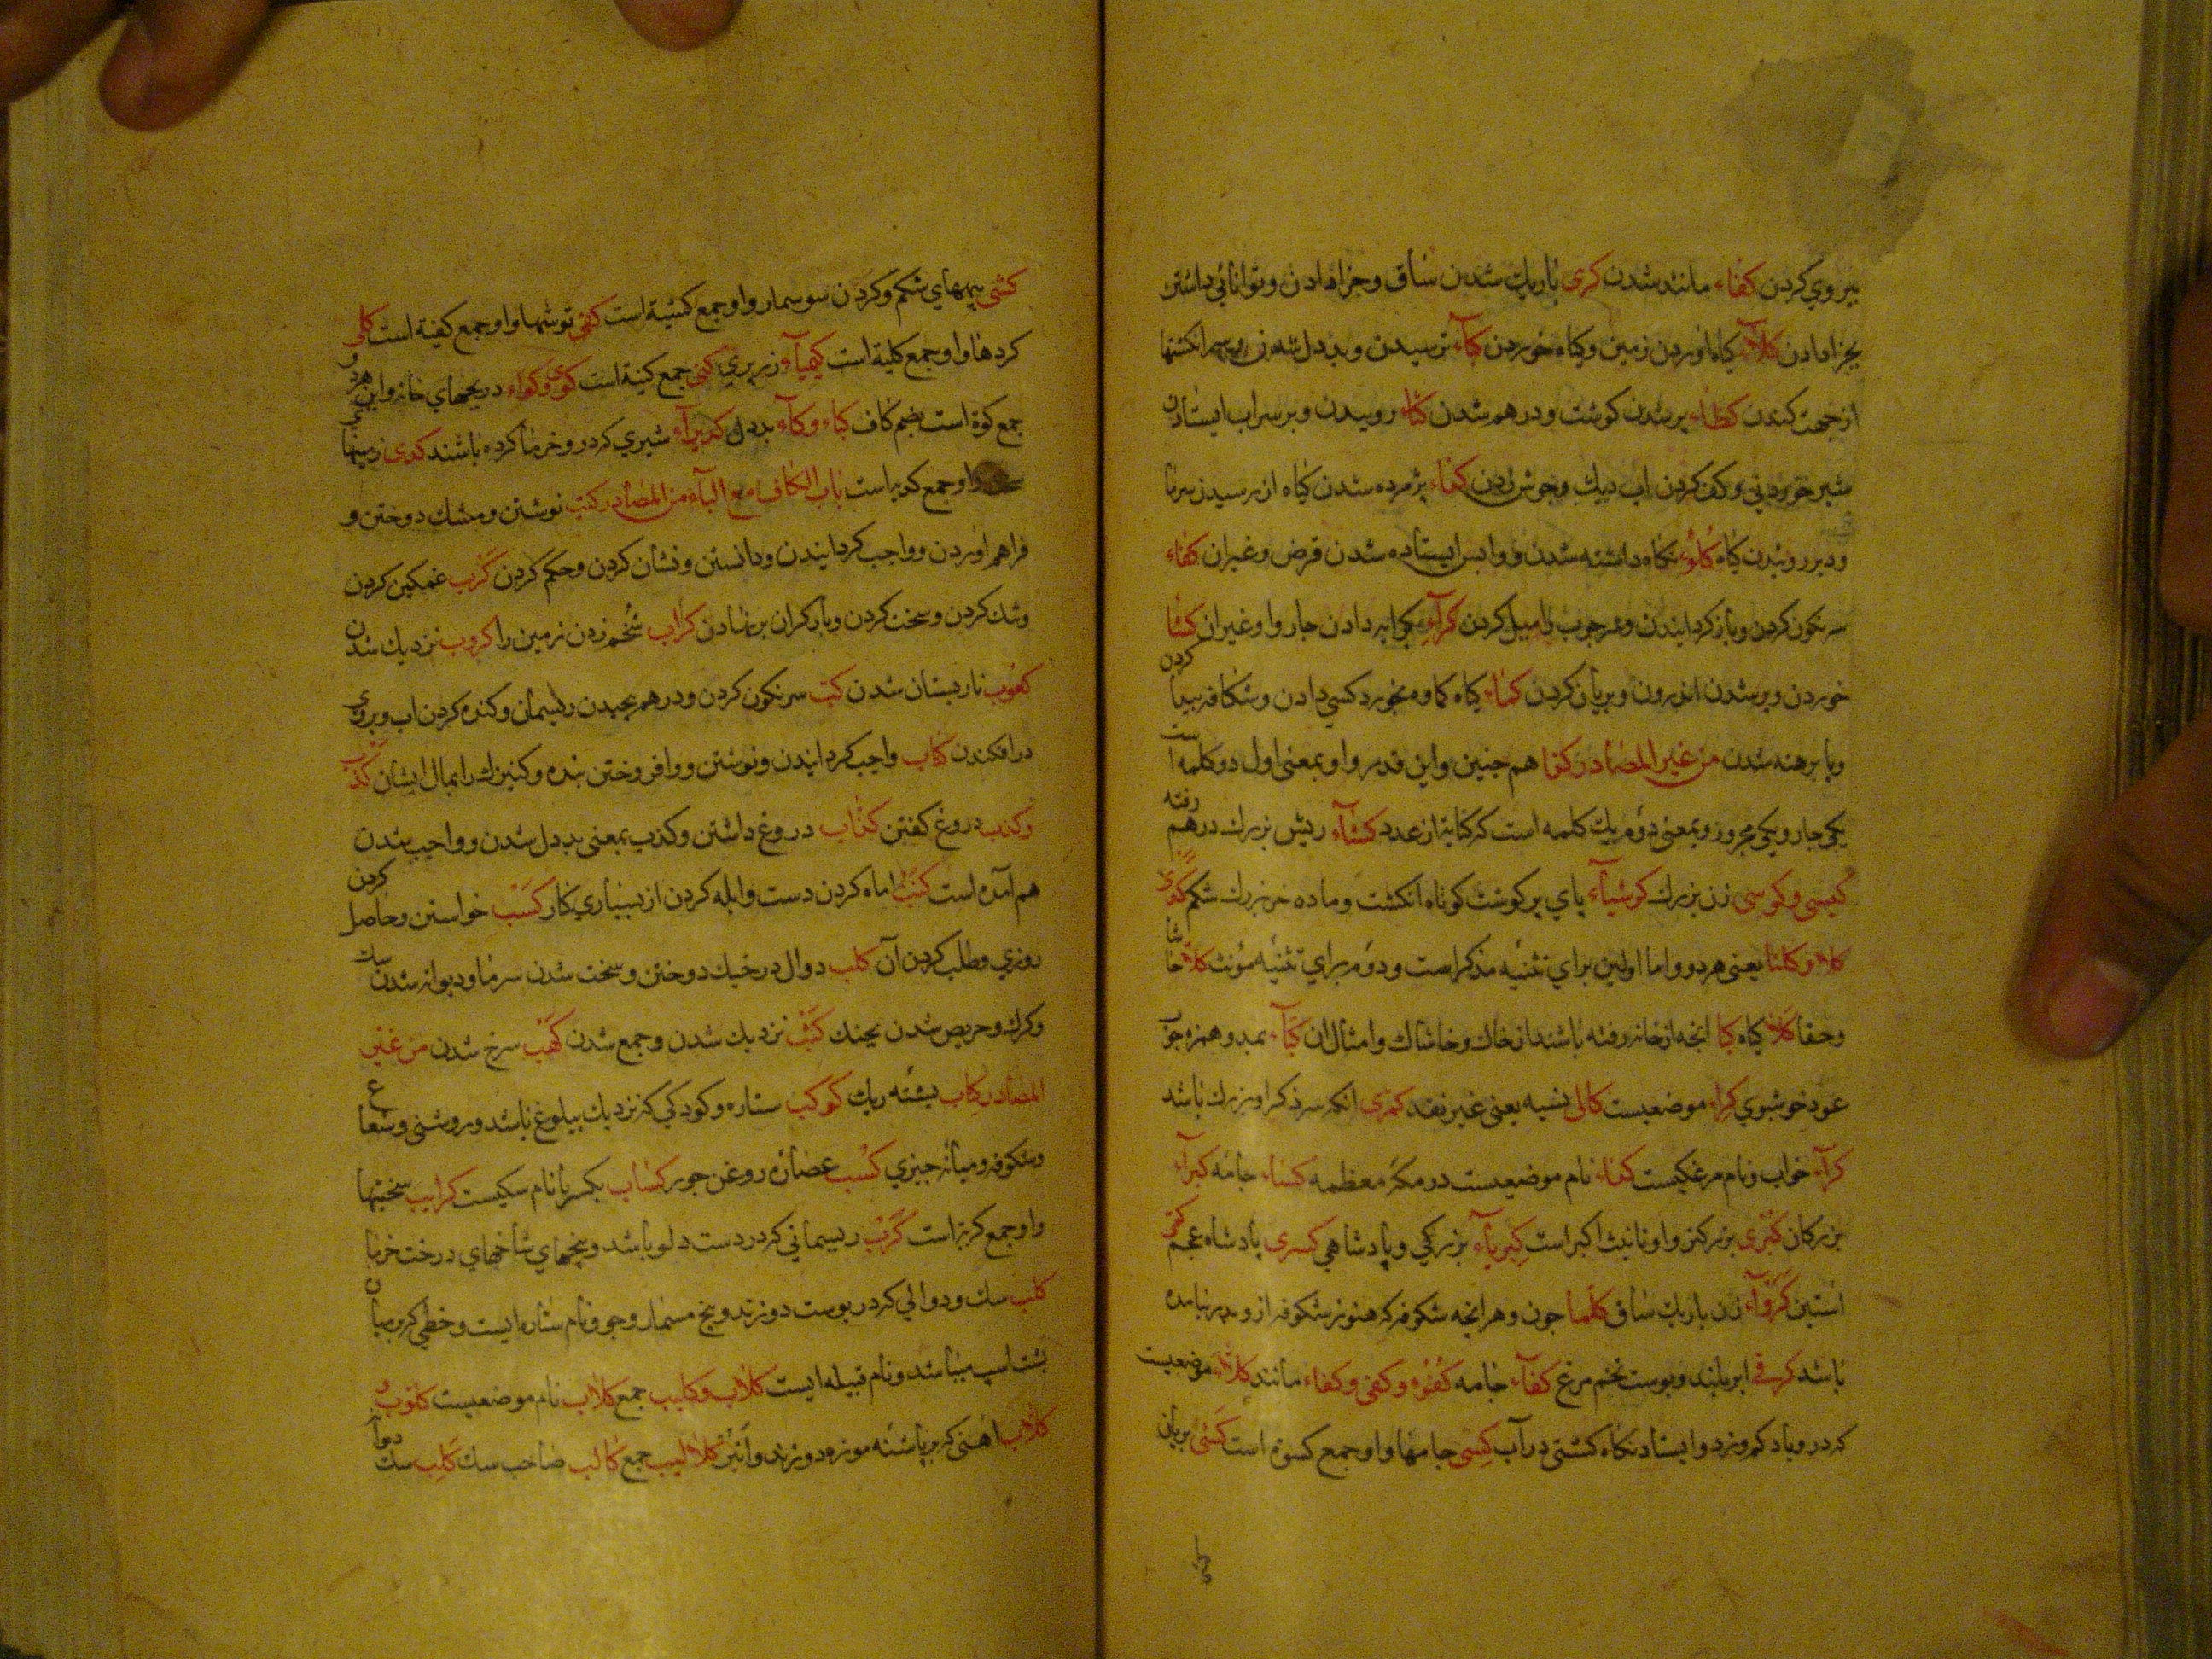 پیروي کردن کفاء مانند شدن کری باریك شدن ساق وجزا دادن وتوانائي داشتن
بجزا دادن کلاء کیاه اوردن زمین وکیاه خوردن کیآء ترسیدن وبد دل شدن
از جهت کندن کظاء پر شدن کوشت ودرهم شدن کثاء روییدن وبر سر اب ایستادن
شیر خوردني وکف کردن اب دیك وجوش زدن کداء پژمرده شدن کیاه از رسیدن سرما
ودیر روئیدن کیاه کلوء نکاه داشته شدن وواپس ایستاده شدن قرض وغیران کفاء
سرنکون کردن وباز کردانیدن کرآء بکرایه دادن چاروا وغیران کشأ
خوردن وپر شدن اندرون وبریان کردن کماء کیاه کماوه بخورد کسي دادن وشکافه پیدا کردن
وپا برهنه شدن من غیر المصادر کذا هم چنین واین قدر واو بمعنی اول دو کلمه است
یکي جار ویکي مجرور وبمعنی دوم یك کلمه است که کنایت از عدد کثآء ریش بزرك درهم رفته
کیسی وکوسی زن بزرك کرشیآء پاي پر کوشت کوتاه انکشت وماده خر بزرك شکم
کلا وکلتا یعنی هر دو واما اولین براي تثنیه مذکر است ودوم براي تثنیه مؤنث کلا حاشا
وحقا کلا کیاه کبا انچه از خانه رفته باشند از خاك وخاشاك وامثال ان کبآء بمد وهمزه چوب
عود خوشبوي کراء موضعیست کالی نسیه یعنی غیر نقد کمری انکه سر ذکر او بزرك باشد
کرآء خواب ونام مرغکیست کداء نام موضعیست در مکه معظمه کساء جامه کبرآء
بزرکان کبری بزرکتر واو تانیث اکبر است کبریآء بزرکي وپادشاهي کسری پادشاه عجم کمی
استین کروآء زن باریك ساق کلما چون وهرانچه شکوفه که هنوز شکوفه از وبدر نیامده
باشد کرفی ابر بلند وپوست تخم مرغ کفآء جامه کفوه وکفی وکفاء مانند کلاء موضعیست
که در وباد کم وزد وایستادنکاه کشتی در آب کسی جامها واو جمع کسوة است کشی بریان
کشی پیهاي شکم وکردن سوسمار واو جمع کشیة است کفی توشها واو جمع کفیة است کلی
کردها واو جمع کلیة است کیمیآء زر پري کنی جمع کنیة است کوی وکواء دریچهاي خانه واین هر دو
جمع کوة است بضم کاف کاء وکآء بد دل کدیرآء شیري که در وخرما کرده باشند کدی زمینهاي
واو جمع کدیه است باب الکاف مع البآء من المصادر کتب نوشتن ومشك دوختن و
فراهم اوردن وواجب کردانیدن ودانستن ونشان کردن وحکم کردن کرب غمکین کردن
وتنك کردن وسخت کردن وبار کران برنهادن کراب شخم زدن زمین را کروب نزدیك شدن
کعوب نارپستان شدن کب سرنکون کردن ودرهم پیچیدن ریسمان وکنده کردن اب وبروي
در افکندن کتاب واجب کردانیدن ونوشتن ووافروختن بنده وکنیزك را بمال ایشان کذب
وکذب دروغ کفتن کذاب دروغ داشتن وکذب بمعنی بد دل شدن وواجب شدن
هم آمده است کنب اماه کردن دست وابله کردن از بسیاري کار کسب خواستن وحاصل کردن
روزي وطلب کردن آن کلب دوال در خیك دوختن وسخت شدن سرما ودیوانه شدن سك
وکرك وحریص شدن بجنك کثب نزدیك شدن وجمع شدن کهب سرخ شدن من غیر
المصادر کثاب پشته ریك کوکب ستاره وکودکي که نزدیك ببلوغ باشد وروشنی وشعاع
وشکوفه ومیانه چیزي کسب عصاره روغن جوز کساب بکسر با نام سکیست کرایب سختیها
واو جمع کربة است کرب ریسماني که در دست دلو باشد وبیخهاي شاخهاي درخت خرما
کلب سك ودوالي که در پوست دوزند ومیخ مسمار وجو ونام ستاره ایست وخطي که بر میان
پشت اسپ میباشد ونام قبیله ایست کلاب وکلیب جمع کلاب نام موضعیست کلوب و
کلاب اهنی که بر پاشنه موزه دوزند وانبر کلالیب جمع کالب صاحب سك کلب سك